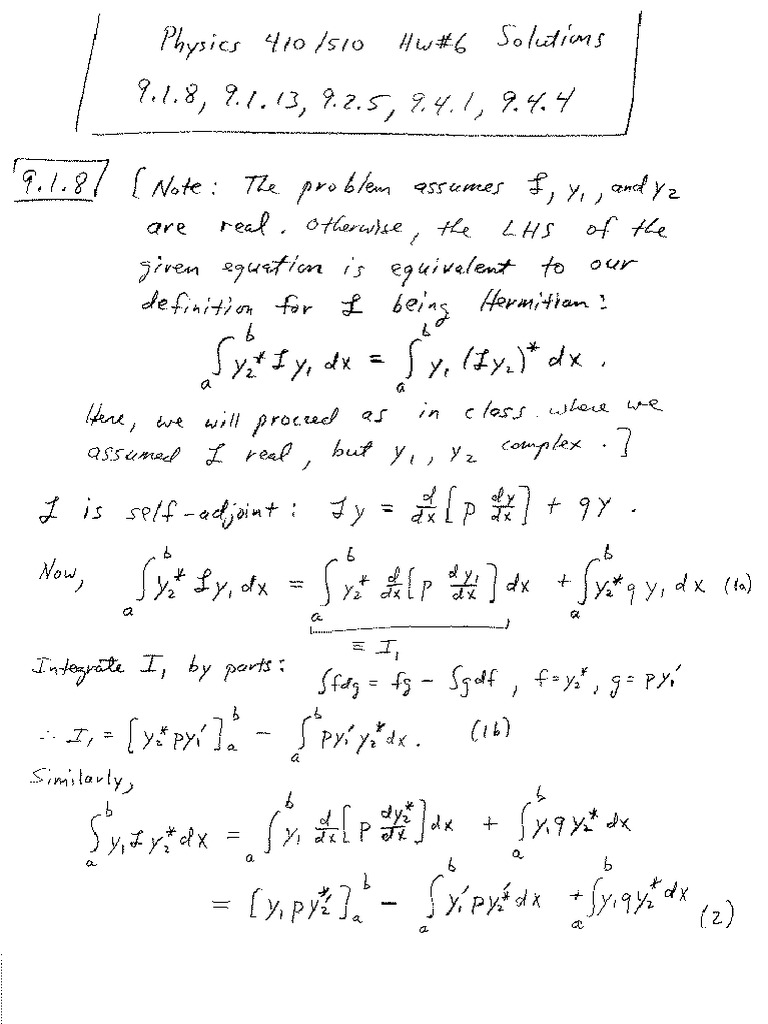 Physics 410/510 HW#6 Solutions
9.1.8, 9.1.13, 9.2.5, 9.4.1, 9.4.4
9.1.8 [Note: The problem assumes ℒ, y₁, and y₂
are real. Otherwise, the LHS of the
given equation is equivalent to our
definition for ℒ being Hermitian:
∫ₐᵇ y₂* ℒ y₁ dx = ∫ₐᵇ y₁ (ℒy₂)* dx .
Here, we will proceed as in class where we
assumed ℒ real, but y₁, y₂ complex.]
ℒ is self-adjoint: ℒy = d/dx [p dy/dx] + qy .
Now, ∫ₐᵇ y₂* ℒy₁ dx = ∫ₐᵇ y₂* d/dx [p dy₁/dx] dx + ∫ₐᵇ y₂* q y₁ dx (1a)
≡ I₁
Integrate I₁ by parts: ∫fdg = fg - ∫gdf , f=y₂*, g= py₁′
∴ I₁ = [y₂* py₁′]ₐᵇ - ∫ₐᵇ py₁′ y₂*′ dx. (1b)
Similarly,
∫ₐᵇ y₁ ℒ y₂* dx = ∫ₐᵇ y₁ d/dx [p dy₂*/dx] dx + ∫ₐᵇ y₁ q y₂* dx
= [y₁ p y₂*′]ₐᵇ - ∫ₐᵇ y₁′ p y₂*′ dx + ∫ₐᵇ y₁ q y₂* dx (2)